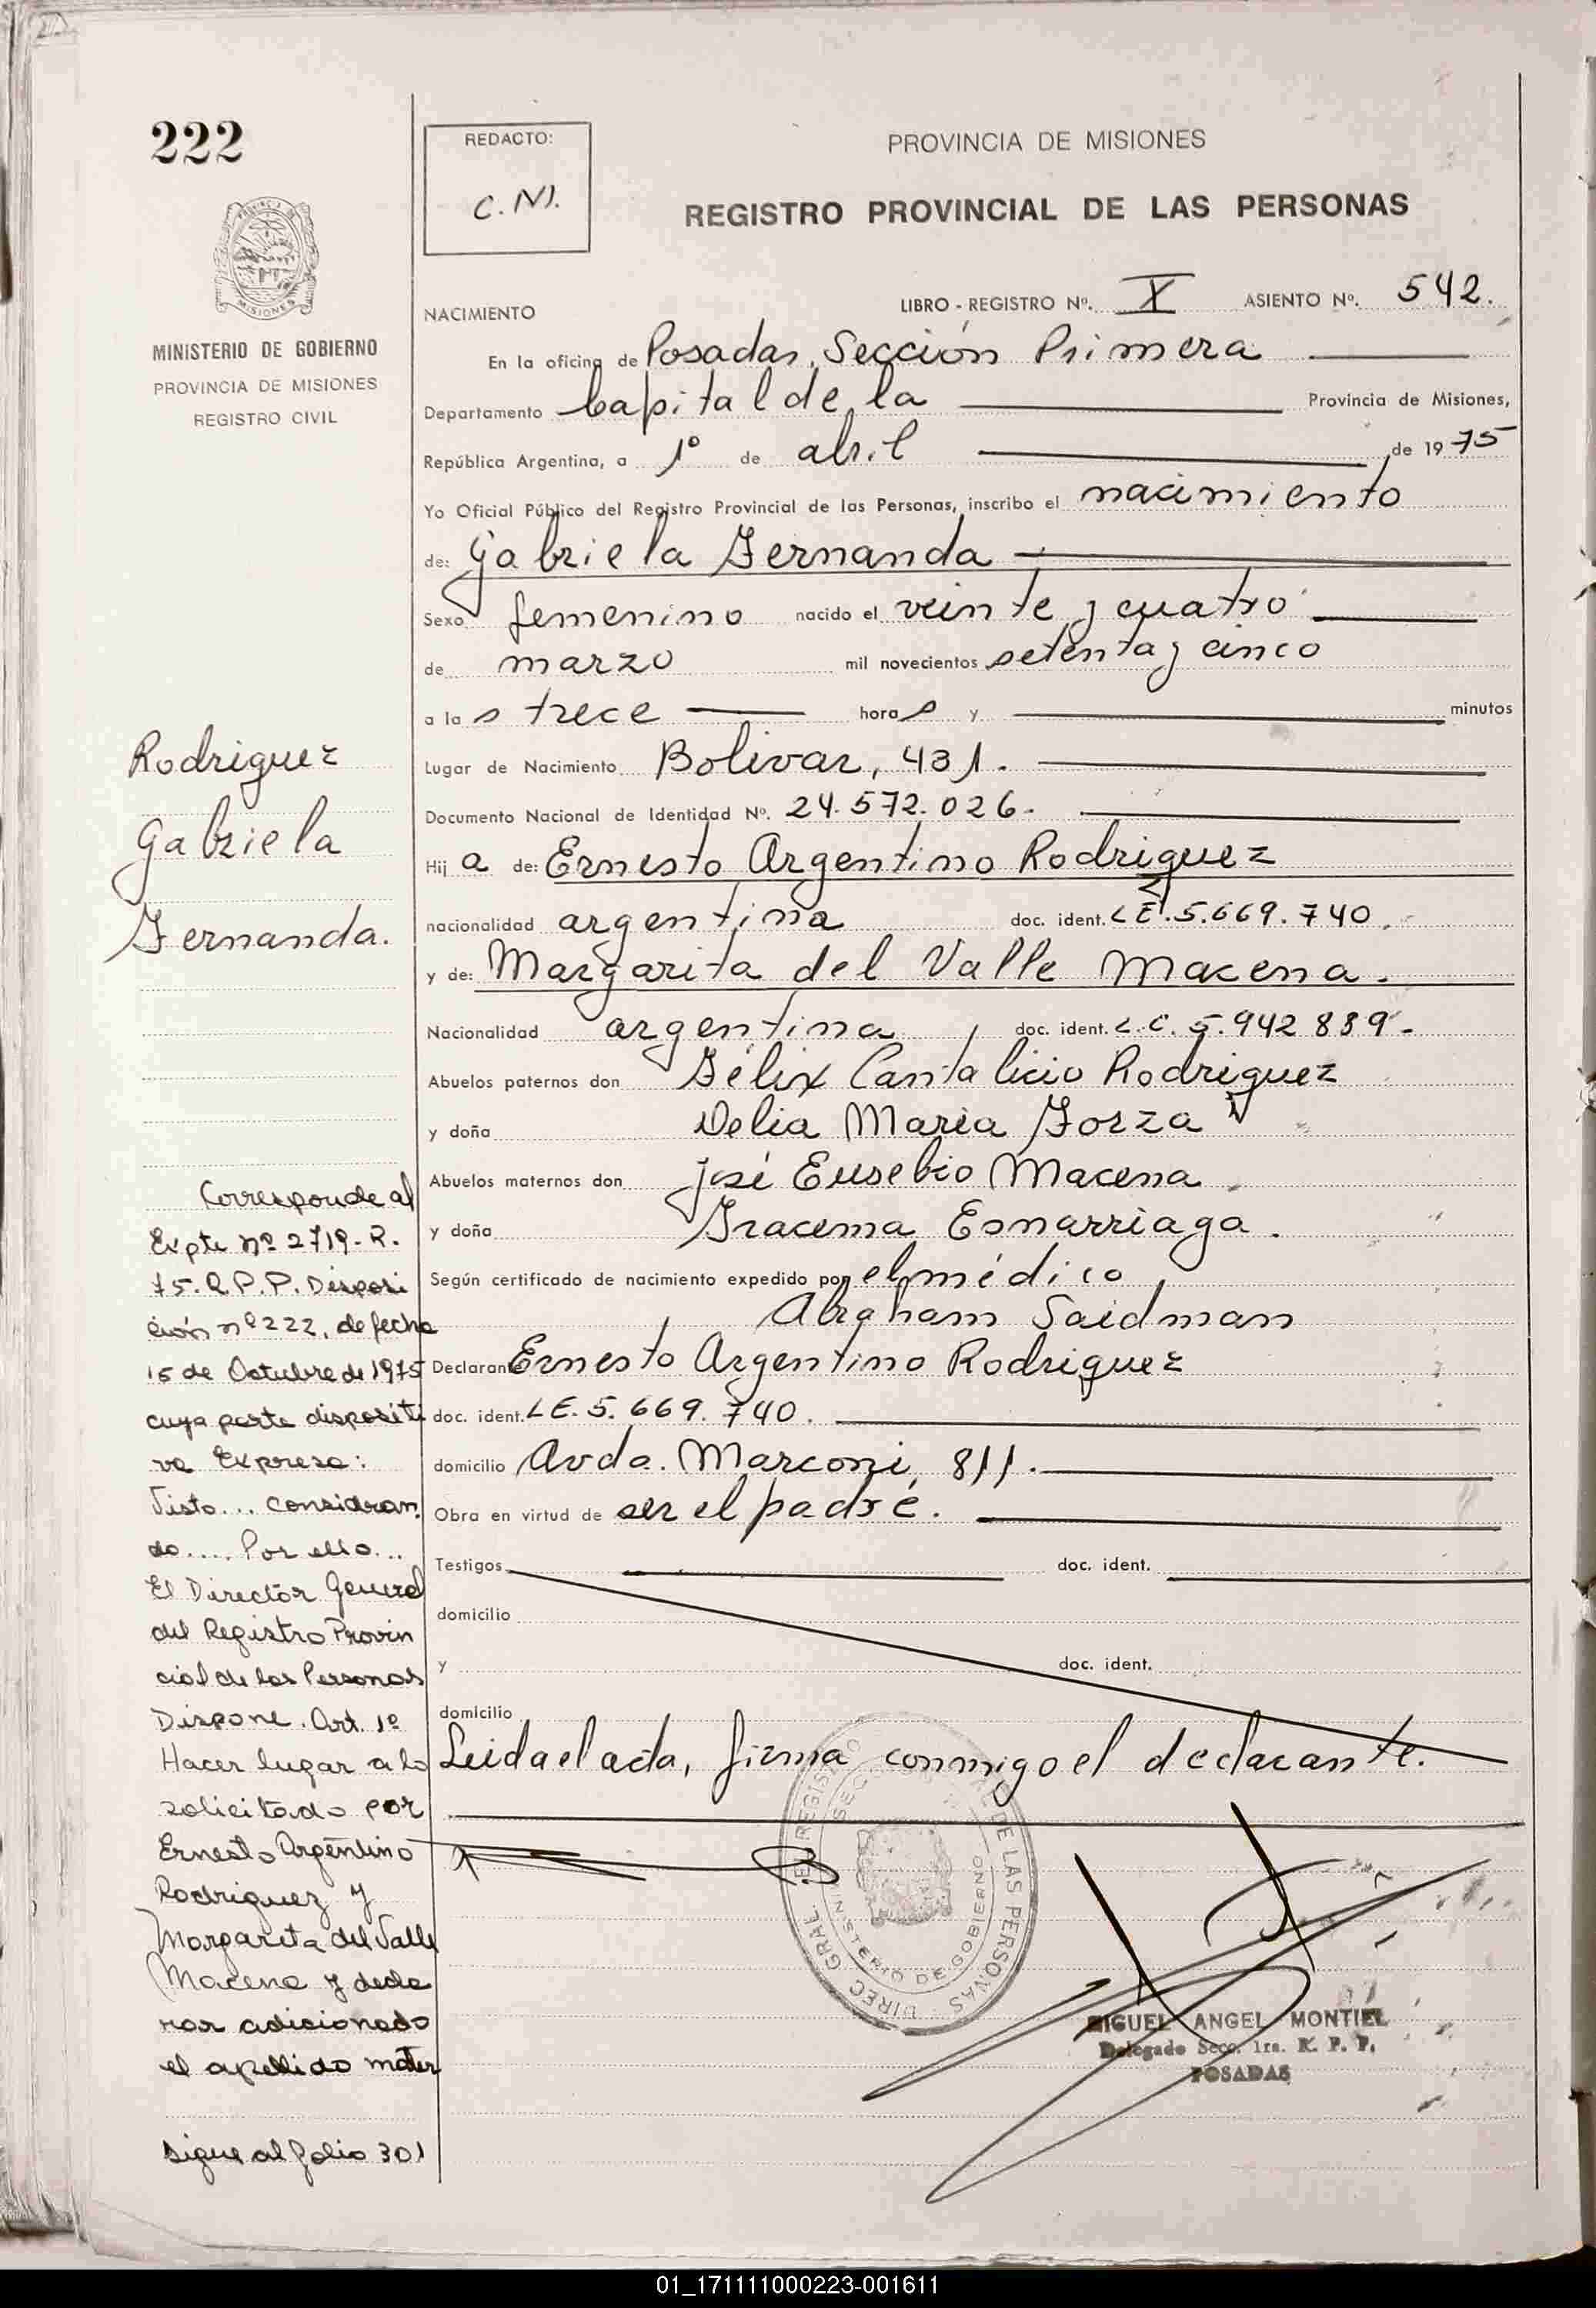 222
REDACTO:
C. M.
PROVINCIA DE MISIONES
REGISTRO PROVINCIAL DE LAS PERSONAS
MINISTERIO DE GOBIERNO
PROVINCIA DE MISIONES
REGISTRO CIVIL
NACIMIENTO LIBRO - REGISTRO Nº. I ASIENTO Nº. 542.
En la oficina de Posadas, Sección Primera
Departamento Capital de la Provincia de Misiones,
República Argentina, a 1º de abril de 1975
Yo Oficial Público del Registro Provincial de las Personas, inscribo el nacimiento
de: Gabriela Fernanda
Sexo femenino nacido el veinte y cuatro
de marzo mil novecientos setenta y cinco
a las trece horas y minutos
Lugar de Nacimiento Bolivar, 431.
Documento Nacional de Identidad Nº. 24.572.026.
Hija de: Ernesto Argentino Rodriguez
nacionalidad argentina doc. ident. LE. 5.669.740.
y de: Margarita del Valle Macena.
Nacionalidad argentina doc. ident. L.C. 5.942889.
Abuelos paternos don Félix Cantalicio Rodriguez
y doña Delia Maria Forza
Abuelos maternos don José Eusebio Macena
y doña Iracema Esnarriaga.
Según certificado de nacimiento expedido por el médico
Abraham Saidman
Declarante Ernesto Argentino Rodriguez
doc. ident. LE. 5.669.740.
domicilio Avda. Marconi, 811.
Obra en virtud de ser el padre.
Testigos doc. ident.
domicilio
y doc. ident.
domicilio
Leida el acta, firma conmigo el declarante.
Rodriguez
Gabriela
Fernanda.
Corresponde al
Expte nº 2719-R.
75-R.P.P. Disposi
ción nº 222, de fecha
15 de Octubre de 1975
cuya parte dispositi
va Expresa:
Visto... consideran
do.... Por ello...
El Director General
del Registro Provin
cial de las Personas
Dispone. Art. 1º
Hacer lugar a lo
solicitado por
Ernesto Argentino
Rodriguez y
Margarita del Valle
Macena y decla
rar adicionado
el apellido mater
sigue al folio 301
DIREC. GRAL. REGISTRO DE LAS PERSONAS
MINISTERIO DE GOBIERNO
MIGUEL ANGEL MONTIEL
Delegado Secc. 1ra. R. P. P.
POSADAS
01_171111000223-001611